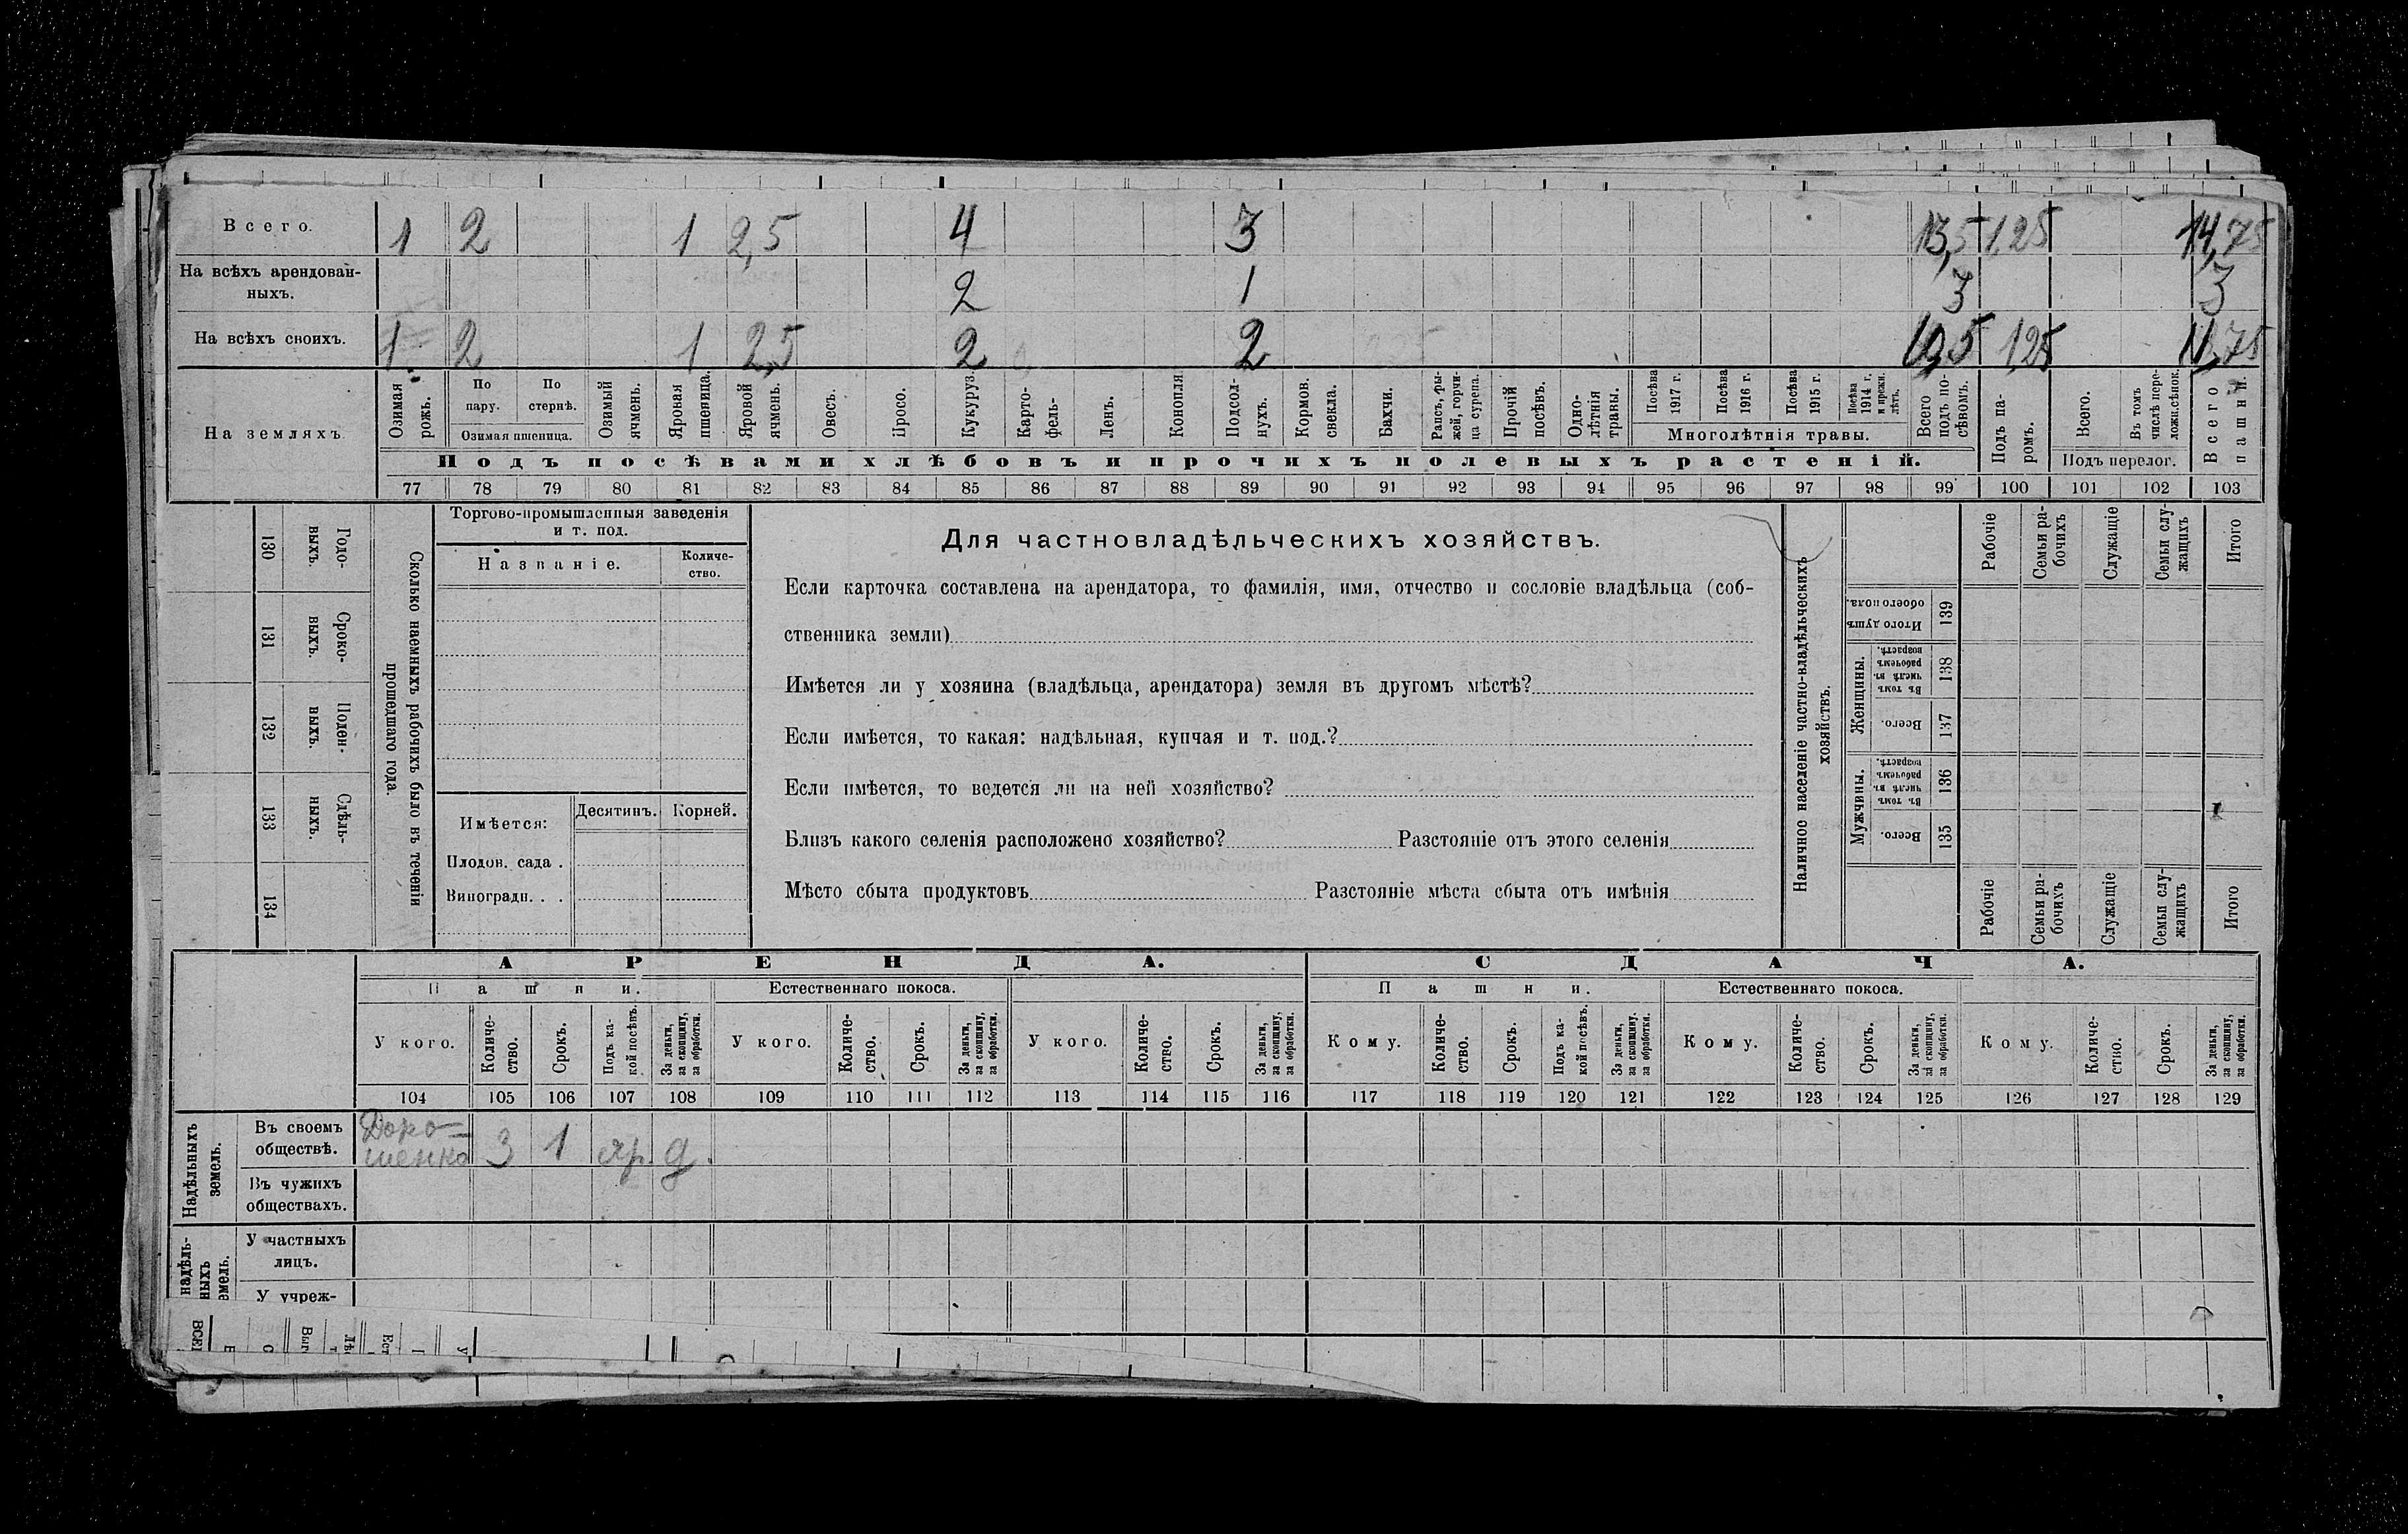 Всего. 1 2 1 2,5 4 3 13,5 1,25 14,75
На всѣхъ арендован-
ныхъ. 2 1 3 3
На всѣхъ своихъ. 1 2 1 2,5 2 2 10,5 1,25 11,75
На земляхъ
Озимая рожь.
По пару.
По стернѣ.
Озимая пшеница.
Озимый ячмень.
Яровая пшеница.
Яровой ячмень.
Овесъ.
Просо.
Кукуруз.
Карто-
фель-
Ленъ.
Конопля
Подсол-
нухъ.
Кормов.
свекла.
Бахчи.
Рапсъ, ры-
жей, горчи-
ца сурепа.
Прочій
посѣвъ.
Одно-
лѣтнія
травы.
Посѣва
1917 г.
Посѣва
1916 г.
Посѣва
1915 г.
Посѣва
1914 г.
и прежн.
лѣтъ.
Многолѣтнія травы.
Всего
подъ по-
сѣвомъ.
Подъ па-
ромъ.
Всего.
Въ томъ
числѣ пере-
ложн.сѣнок.
Подъ перелог.
Всего
пашни.
Подъ посѣвами хлѣбовъ и прочихъ полевыхъ растеній.
77 78 79 80 81 82 83 84 85 86 87 88 89 90 91 92 93 94 95 96 97 98 99 100 101 102 103
130
Годо-
выхъ.
131
Сроко-
выхъ.
132
Поден-
выхъ.
133
Сдѣль-
ныхъ.
134
Сколько наемныхъ рабочихъ было въ теченіи
прошедшаго года.
Торгово-промышленныя заведенія
и т. под.
Названіе.
Количе-
ство.
Имѣется:
Десятинъ.
Корней.
Плодов. сада .
Виноградн. . .
Для частновладѣльческихъ хозяйствъ.
Если карточка составлена на арендатора, то фамилія, имя, отчество и сословіе владѣльца (соб-
ственника земли)
Имѣется ли у хозяина (владѣльца, арендатора) земля въ другомъ мѣстѣ?
Если имѣется, то какая: надѣльная, купчая и т. под.?
Если имѣется, то ведется ли на ней хозяйство?
Близъ какого селенія расположено хозяйство? Разстояніе отъ этого селенія
Мѣсто сбыта продуктовъ Разстояніе мѣста сбыта отъ имѣнія
Наличное населеніе частно-владѣльческихъ
хозяйствъ.
Рабочіе
Семьи ра-
бочихъ
Служащіе
Семьи слу-
жащихъ
Итого
Итого душъ
обоего пола.
139
Женщины.
Въ томъ
числѣ въ
рабочемъ
возрастѣ.
138
Всего.
137
Мужчины.
Въ томъ
числѣ въ
рабочемъ
возрастѣ.
136
Всего.
135
Рабочіе
Семьи ра-
бочихъ
Служащіе
Семьи слу-
жащихъ
Итого
АРЕНДА. СДАЧА.
Пашни. Естественнаго покоса. Пашни. Естественнаго покоса.
У кого.
Количе-
ство.
Срокъ.
Подъ ка-
кой посѣвъ.
За деньги,
за скопщину,
за обработки.
У кого.
Количе-
ство.
Срокъ.
За деньги,
за скопщину,
за обработки.
У кого.
Количе-
ство.
Срокъ.
За деньги,
за скопщину,
за обработки.
Кому.
Количе-
ство.
Срокъ.
Подъ ка-
кой посѣвъ.
За деньги,
за скопщину.
за обработки.
Кому.
Количе-
ство.
Срокъ.
За деньги,
за скопщину,
за обработки.
Кому.
Количе-
ство.
Срокъ.
За деньги,
за скопщину,
за обработки.
104 105 106 107 108 109 110 111 112 113 114 115 116 117 118 119 120 121 122 123 124 125 126 127 128 129
Надѣльныхъ
земель.
Въ своемъ
обществѣ.
Доро-
шенко 3 1 яр. д.
Въ чужихъ
обществахъ.
надѣль-
ныхъ
емель.
У частныхъ
лицъ.
У учреж-